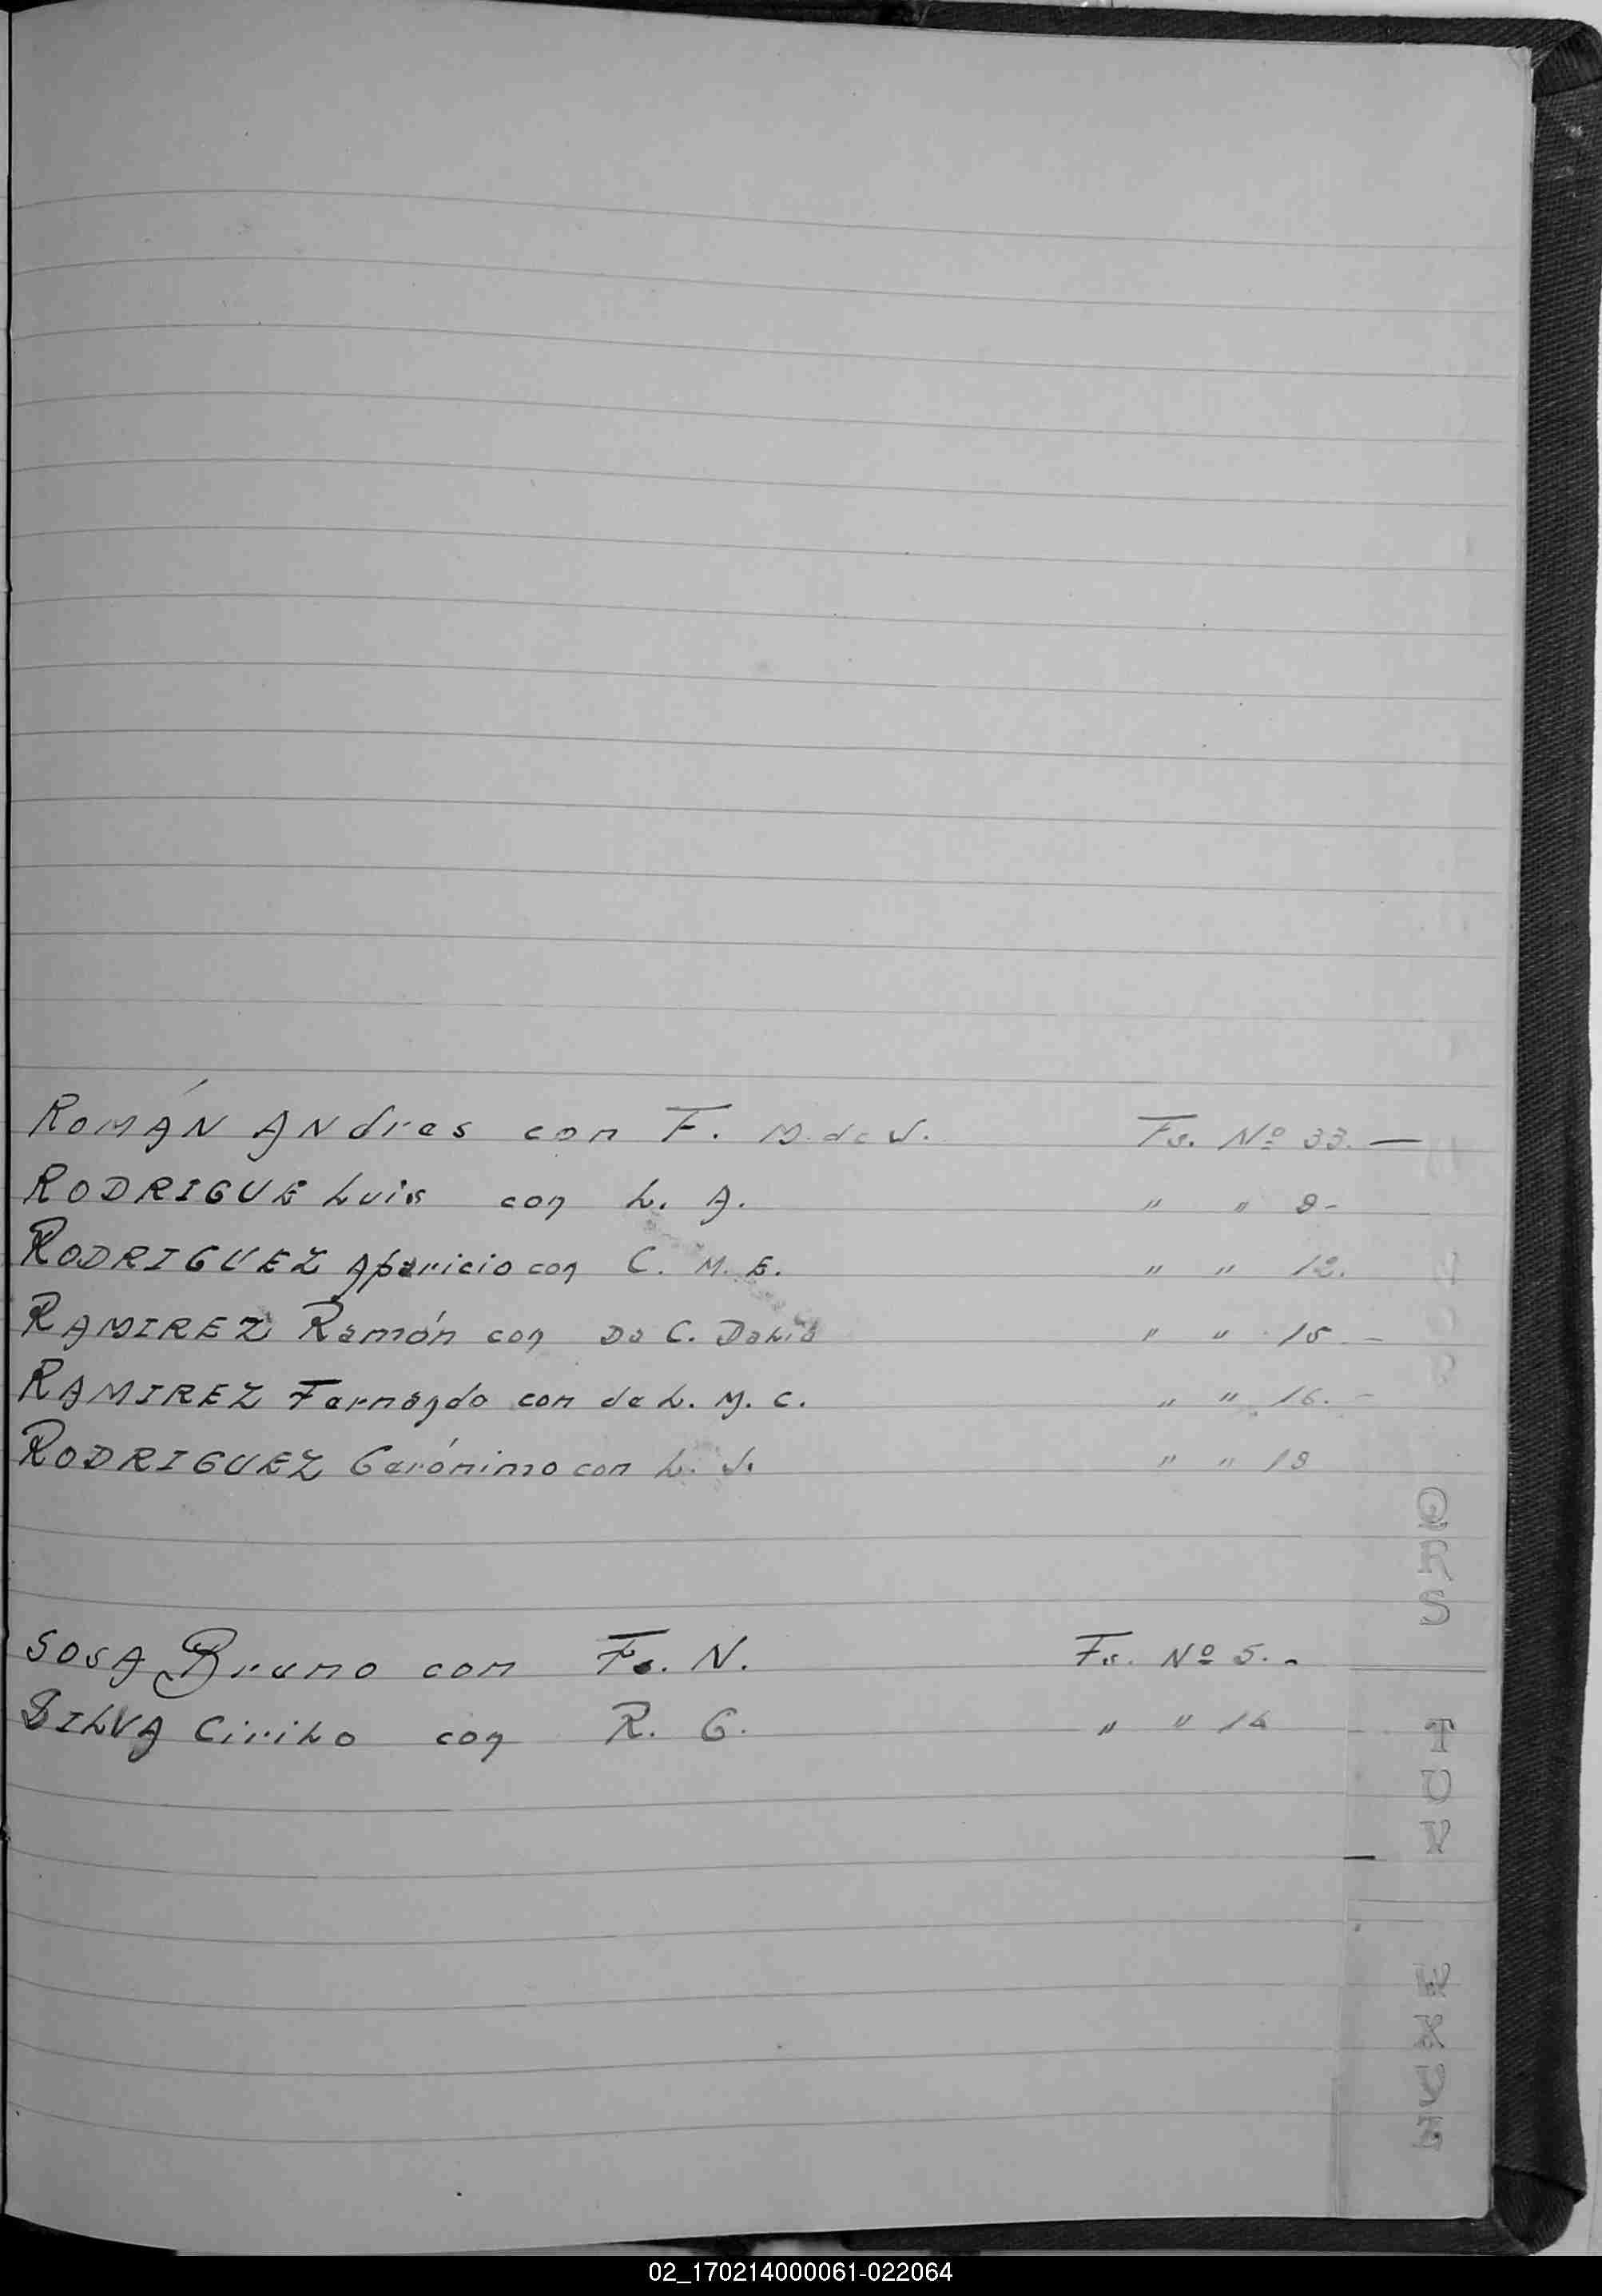 ROMÁN ANdres con F. M. de J. Fs. Nº 33. —
RODRIGUE Luis con L. A. " " 9-
RODRIGUEZ Aparicio con C. M. E. " " 12.
RAMIREZ Ramón con Da C. " " 15 -
RAMIREZ Fernando con de L. M. C. " " 16. -
RODRIGUEZ Gerónimo con L. J. " " 18
Q
R
S
SOSA Bruno con Fs. N. Fs. Nº 5. -
SILVA Cirilo con R. G. " "
T
U
V
02_170214000061-022064